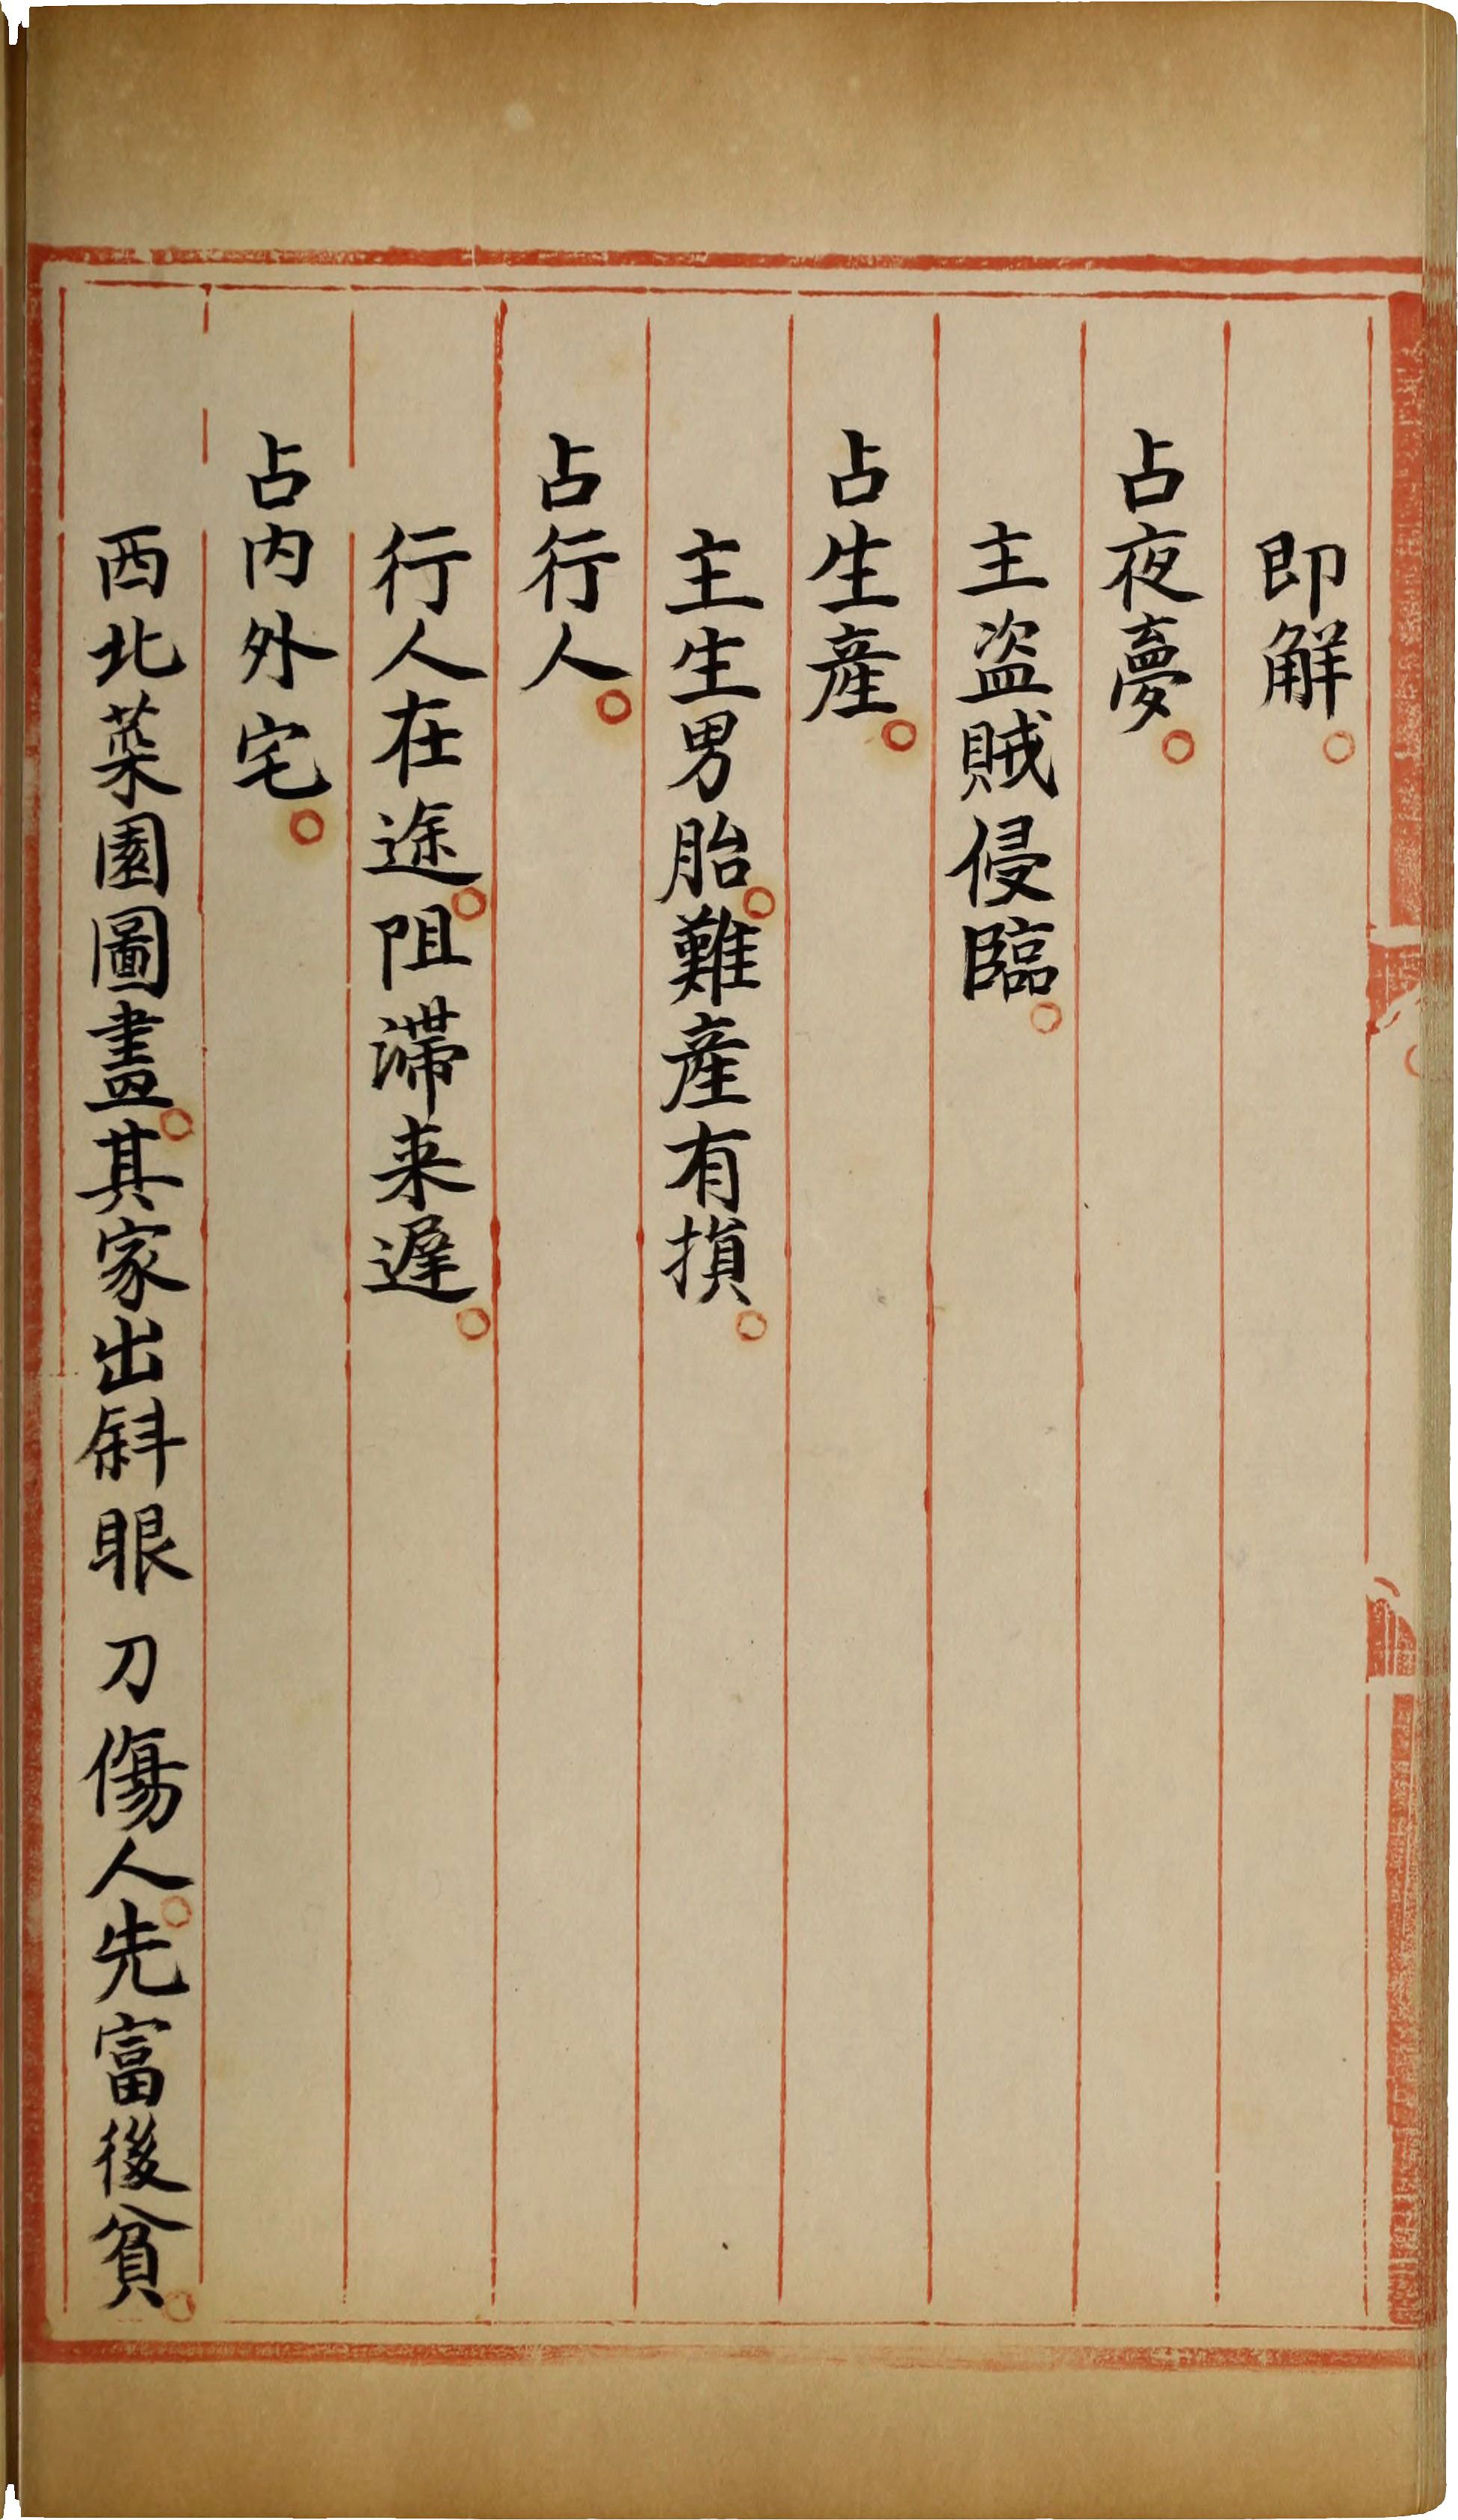 即解。
占夜夢。
主盗賊侵臨。
占生産。
主生男胎。難産有損。
占行人。
行人在途。阻滯来遲。
占内外宅。
西北菜園圖盡。其家出斜眼刀傷人。先富後貧。